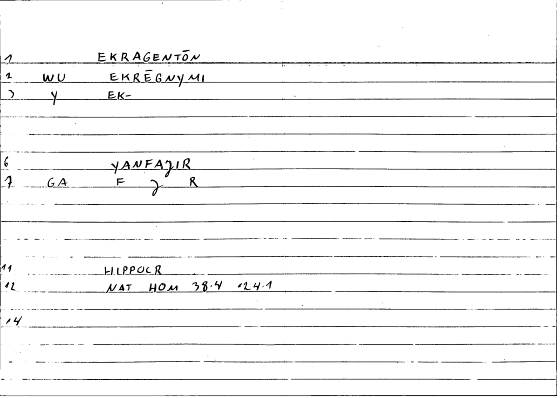 1 EKRAGENTŌN
2 WU EKRĒGNYMI
3 Y EK-
6 YANFAJIR
7 GA F J R
11 HIPPOCR
12 NAT HOM 38.4 •24.1
14